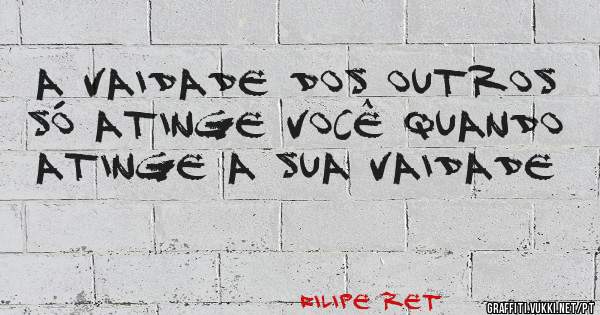 A VAIDADE DOS OUTROS
SÓ ATINGE VOCÊ QUANDO
ATINGE A SUA VAIDADE
FILIPE RET
GRAFFITI.VUKKI.NET/PT